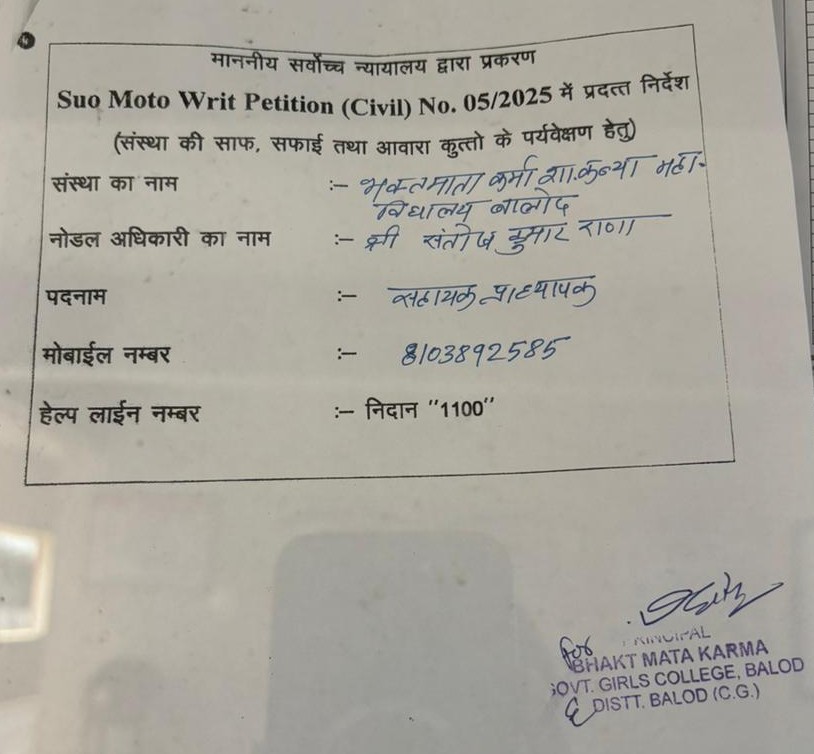 माननीय सर्वोच्च न्यायालय द्वारा प्रकरण
Suo Moto Writ Petition (Civil) No. 05/2025 में प्रदत्त निर्देश
(संस्था की साफ, सफाई तथा आवारा कुत्तो के पर्यवेक्षण हेतु)
संस्था का नाम :– भक्तमाता कर्मा शा.कन्या महा-
विद्यालय बालोद
नोडल अधिकारी का नाम :– श्री संतोष कुमार राणा
पदनाम :– सहायक प्राध्यापक
मोबाईल नम्बर :– 8103892585
हेल्प लाईन नम्बर :– निदान "1100"
for PRINCIPAL
BHAKT MATA KARMA
GOVT. GIRLS COLLEGE, BALOD
DISTT. BALOD (C.G.)